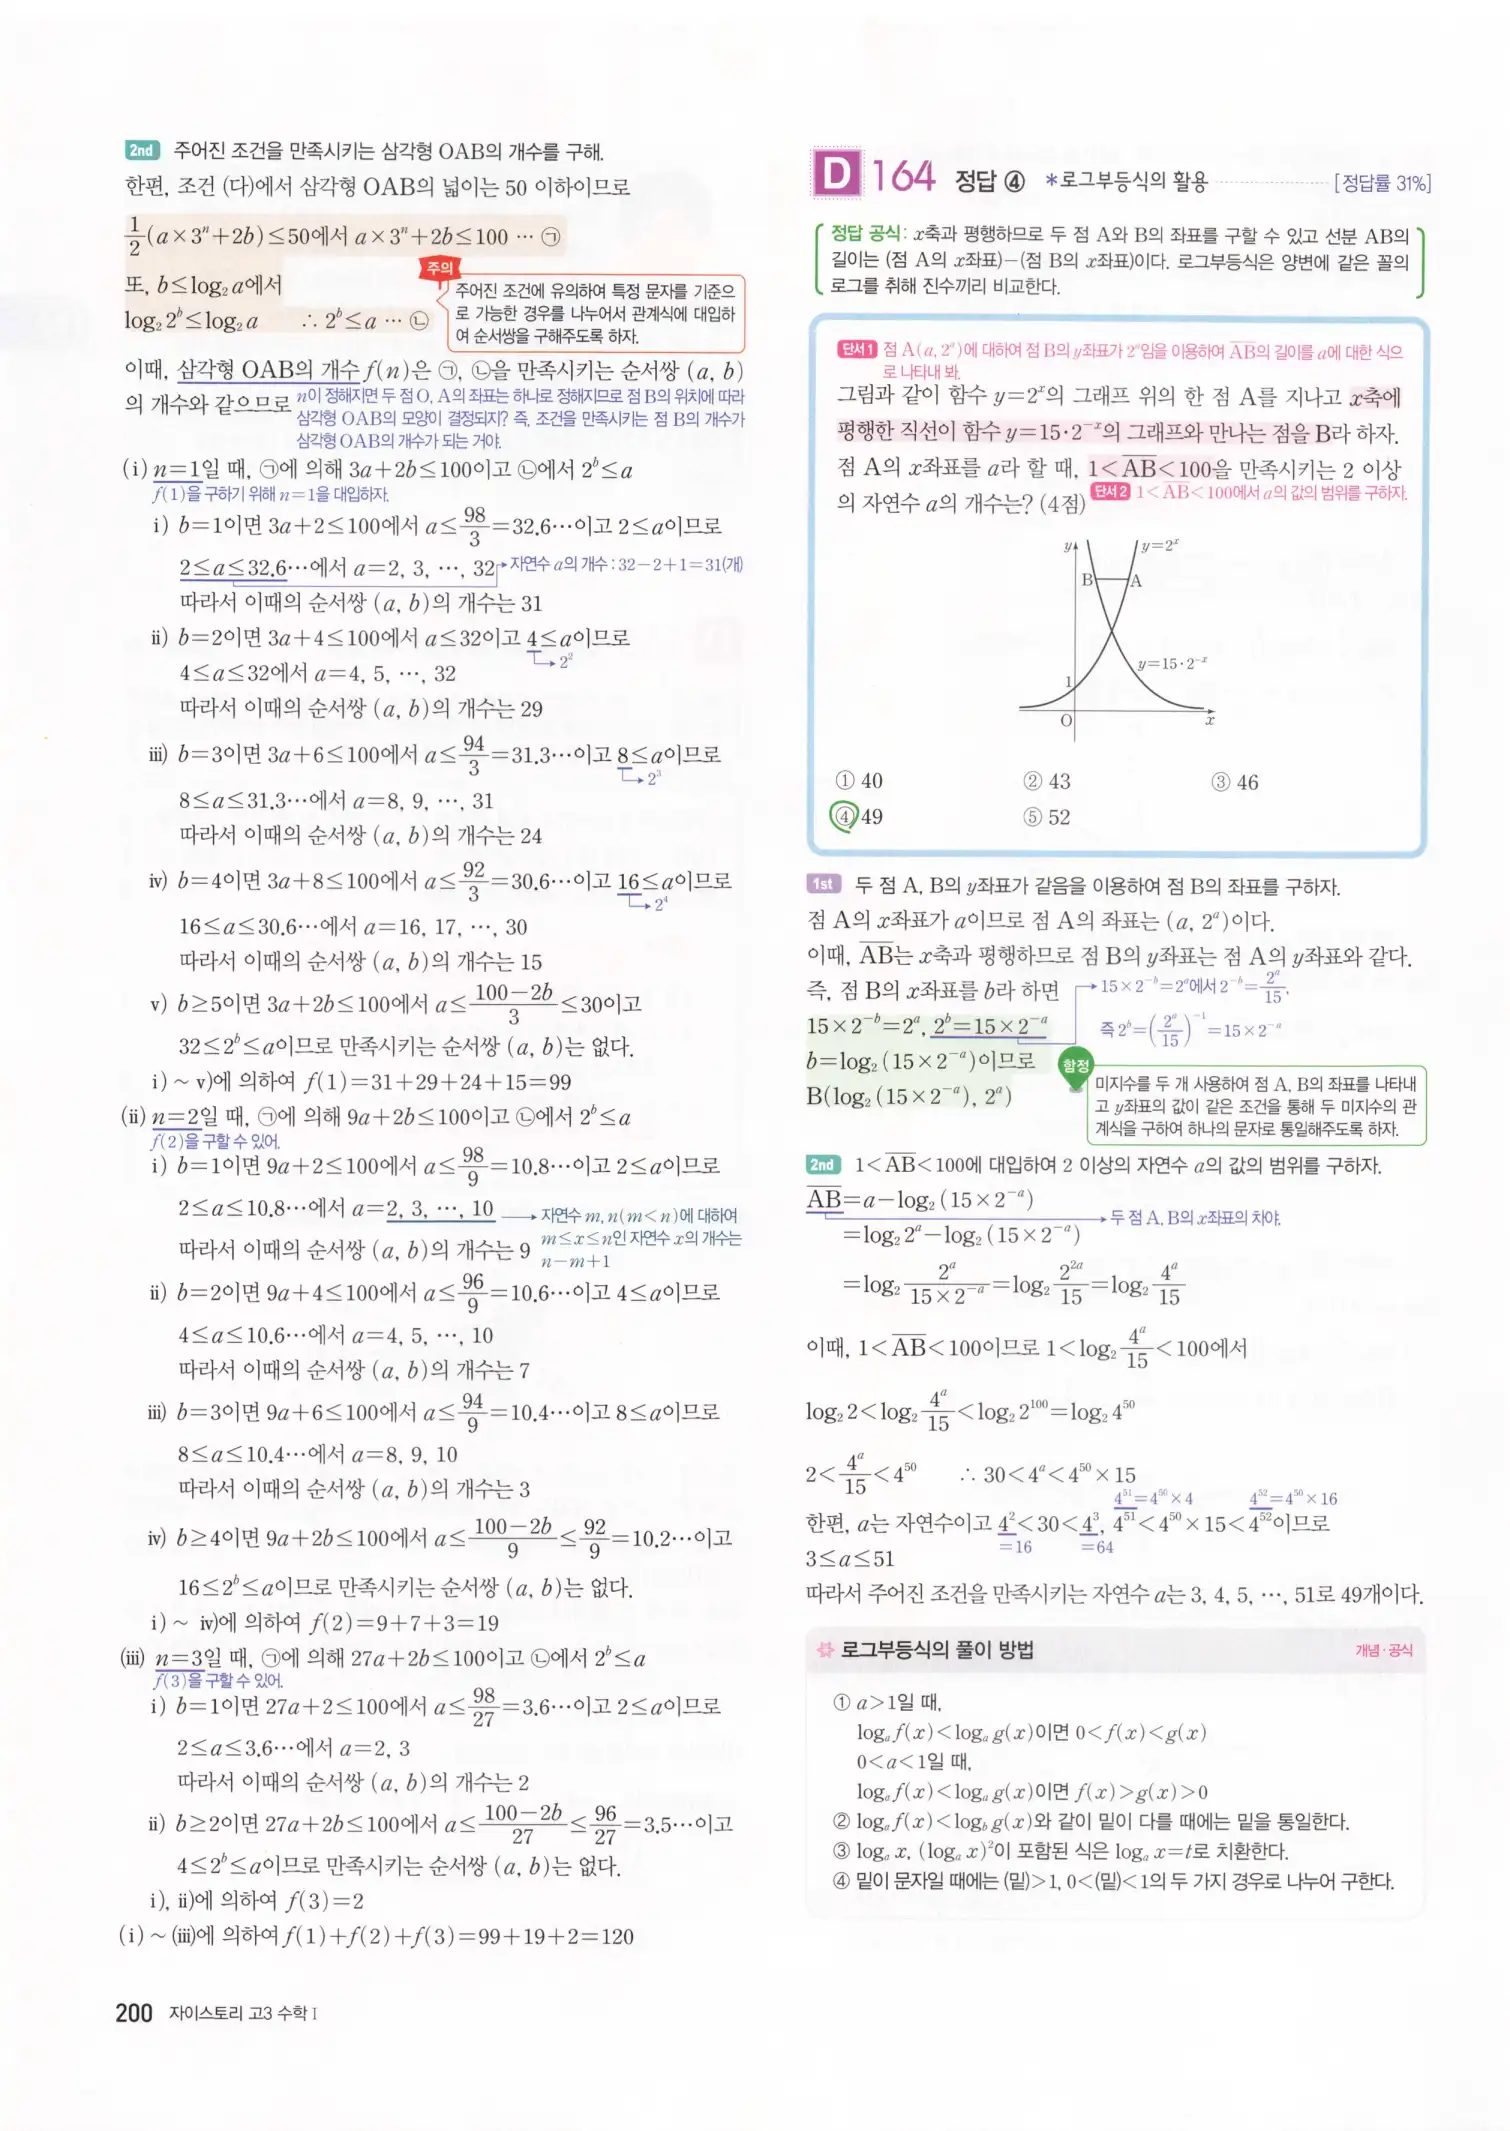 2nd 주어진 조건을 만족시키는 삼각형 OAB의 개수를 구해.
한편, 조건 (다)에서 삼각형 OAB의 넓이는 50 이하이므로
1/2(a×3ⁿ+2b)≤50에서 a×3ⁿ+2b≤100 … ㉠
또, b≤log₂ a에서
log₂ 2ᵇ≤log₂ a ∴ 2ᵇ≤a … ㉡
주의
주어진 조건에 유의하여 특정 문자를 기준으
로 가능한 경우를 나누어서 관계식에 대입하
여 순서쌍을 구해주도록 하자.
이때, 삼각형 OAB의 개수 f(n)은 ㉠, ㉡을 만족시키는 순서쌍 (a, b)
의 개수와 같으므로 n이 정해지면 두 점 O, A의 좌표는 하나로 정해지므로 점 B의 위치에 따라
삼각형 OAB의 모양이 결정되지? 즉, 조건을 만족시키는 점 B의 개수가
삼각형 OAB의 개수가 되는 거야.
(i) n=1일 때, ㉠에 의해 3a+2b≤100이고 ㉡에서 2ᵇ≤a
f(1)을 구하기 위해 n=1을 대입하자.
i) b=1이면 3a+2≤100에서 a≤98/3=32.6…이고 2≤a이므로
2≤a≤32.6…에서 a=2, 3, …, 32 → 자연수 a의 개수 : 32-2+1=31(개)
따라서 이때의 순서쌍 (a, b)의 개수는 31
ii) b=2이면 3a+4≤100에서 a≤32이고 4≤a이므로
→ 2²
4≤a≤32에서 a=4, 5, …, 32
따라서 이때의 순서쌍 (a, b)의 개수는 29
iii) b=3이면 3a+6≤100에서 a≤94/3=31.3…이고 8≤a이므로
→ 2³
8≤a≤31.3…에서 a=8, 9, …, 31
따라서 이때의 순서쌍 (a, b)의 개수는 24
iv) b=4이면 3a+8≤100에서 a≤92/3=30.6…이고 16≤a이므로
→ 2⁴
16≤a≤30.6…에서 a=16, 17, …, 30
따라서 이때의 순서쌍 (a, b)의 개수는 15
v) b≥5이면 3a+2b≤100에서 a≤(100-2b)/3≤30이고
32≤2ᵇ≤a이므로 만족시키는 순서쌍 (a, b)는 없다.
i) ~ v)에 의하여 f(1)=31+29+24+15=99
(ii) n=2일 때, ㉠에 의해 9a+2b≤100이고 ㉡에서 2ᵇ≤a
f(2)을 구할 수 있어.
i) b=1이면 9a+2≤100에서 a≤98/9=10.8…이고 2≤a이므로
2≤a≤10.8…에서 a=2, 3, …, 10 → 자연수 m, n(m<n)에 대하여
m≤x≤n인 자연수 x의 개수는
n-m+1
따라서 이때의 순서쌍 (a, b)의 개수는 9
ii) b=2이면 9a+4≤100에서 a≤96/9=10.6…이고 4≤a이므로
4≤a≤10.6…에서 a=4, 5, …, 10
따라서 이때의 순서쌍 (a, b)의 개수는 7
iii) b=3이면 9a+6≤100에서 a≤94/9=10.4…이고 8≤a이므로
8≤a≤10.4…에서 a=8, 9, 10
따라서 이때의 순서쌍 (a, b)의 개수는 3
iv) b≥4이면 9a+2b≤100에서 a≤(100-2b)/9≤92/9=10.2…이고
16≤2ᵇ≤a이므로 만족시키는 순서쌍 (a, b)는 없다.
i) ~ iv)에 의하여 f(2)=9+7+3=19
(iii) n=3일 때, ㉠에 의해 27a+2b≤100이고 ㉡에서 2ᵇ≤a
f(3)을 구할 수 있어.
i) b=1이면 27a+2≤100에서 a≤98/27=3.6…이고 2≤a이므로
2≤a≤3.6…에서 a=2, 3
따라서 이때의 순서쌍 (a, b)의 개수는 2
ii) b≥2이면 27a+2b≤100에서 a≤(100-2b)/27≤96/27=3.5…이고
4≤2ᵇ≤a이므로 만족시키는 순서쌍 (a, b)는 없다.
i), ii)에 의하여 f(3)=2
(i) ~ (iii)에 의하여 f(1)+f(2)+f(3)=99+19+2=120
200 자이스토리 고3 수학 I
D 164 정답 ④ *로그부등식의 활용 [정답률 31%]
정답 공식: x축과 평행하므로 두 점 A와 B의 좌표를 구할 수 있고 선분 AB의
길이는 (점 A의 x좌표)-(점 B의 x좌표)이다. 로그부등식은 양변에 같은 꼴의
로그를 취해 진수끼리 비교한다.
단서1 점 A(a, 2ᵃ)에 대하여 점 B의 y좌표가 2ᵃ임을 이용하여 AB의 길이를 a에 대한 식으
로 나타내 봐.
그림과 같이 함수 y=2ˣ의 그래프 위의 한 점 A를 지나고 x축에
평행한 직선이 함수 y=15·2⁻ˣ의 그래프와 만나는 점을 B라 하자.
점 A의 x좌표를 a라 할 때, 1<AB<100을 만족시키는 2 이상
의 자연수 a의 개수는? (4점) 단서2 1<AB<100에서 a의 값의 범위를 구하자.
y y=2ˣ
B A
y=15·2⁻ˣ
1
O x
① 40 ② 43 ③ 46
④ 49 ⑤ 52
1st 두 점 A, B의 y좌표가 같음을 이용하여 점 B의 좌표를 구하자.
점 A의 x좌표가 a이므로 점 A의 좌표는 (a, 2ᵃ)이다.
이때, AB는 x축과 평행하므로 점 B의 y좌표는 점 A의 y좌표와 같다.
즉, 점 B의 x좌표를 b라 하면 → 15×2⁻ᵇ=2ᵃ에서 2⁻ᵇ=2ᵃ/15,
15×2⁻ᵇ=2ᵃ, 2ᵇ=15×2⁻ᵃ 즉 2ᵇ=(2ᵃ/15)⁻¹=15×2⁻ᵃ
b=log₂(15×2⁻ᵃ)이므로
B(log₂(15×2⁻ᵃ), 2ᵃ)
함정
미지수를 두 개 사용하여 점 A, B의 좌표를 나타내
고 y좌표의 값이 같은 조건을 통해 두 미지수의 관
계식을 구하여 하나의 문자로 통일해주도록 하자.
2nd 1<AB<100에 대입하여 2 이상의 자연수 a의 값의 범위를 구하자.
AB=a-log₂(15×2⁻ᵃ)
→ 두 점 A, B의 x좌표의 차야.
=log₂ 2ᵃ-log₂(15×2⁻ᵃ)
=log₂ 2ᵃ/(15×2⁻ᵃ)=log₂ 2²ᵃ/15=log₂ 4ᵃ/15
이때, 1<AB<100이므로 1<log₂ 4ᵃ/15<100에서
log₂ 2<log₂ 4ᵃ/15<log₂ 2¹⁰⁰=log₂ 4⁵⁰
2<4ᵃ/15<4⁵⁰ ∴ 30<4ᵃ<4⁵⁰×15
4⁵¹=4⁵⁰×4 4⁵²=4⁵⁰×16
한편, a는 자연수이고 4²<30<4³, 4⁵¹<4⁵⁰×15<4⁵²이므로
=16 =64
3≤a≤51
따라서 주어진 조건을 만족시키는 자연수 a는 3, 4, 5, …, 51로 49개이다.
로그부등식의 풀이 방법 개념·공식
① a>1일 때,
logₐ f(x)<logₐ g(x)이면 0<f(x)<g(x)
0<a<1일 때,
logₐ f(x)<logₐ g(x)이면 f(x)>g(x)>0
② logₐ f(x)<log_b g(x)와 같이 밑이 다를 때에는 밑을 통일한다.
③ logₐ x, (logₐ x)²이 포함된 식은 logₐ x=t로 치환한다.
④ 밑이 문자일 때에는 (밑)>1, 0<(밑)<1의 두 가지 경우로 나누어 구한다.